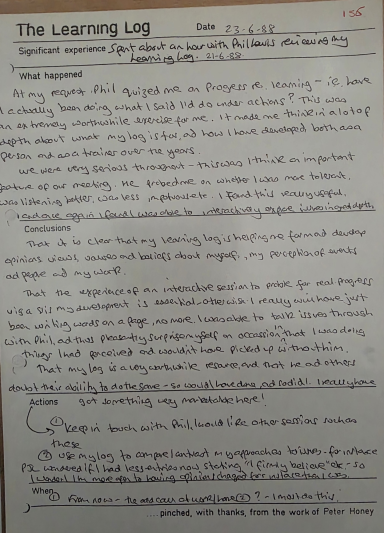 156
The Learning Log Date 23-6-88
Significant experience Spent about an hour with Phil Lewis reviewing my
Learning Log. 21-6-88
What happened
At my request Phil quized me on Progress re. learning - ie. have
I actually been doing what I said I'd do under actions? This was
an extremely worthwhile exercise for me. It made me think in a lot of
depth about what my log is for, and how I have developed both as a
person and as a trainer over the years.
We were very serious throughout - this was I think an important
feature of our meeting. He probed me on whether I was more tolerant,
was listening better, was less I found this really useful.
again I found I was able to interactively issues in depth
Conclusions
That it is clear that my learning log is helping me form and develop
opinions views, values and beliefs about myself, my perception of events
and people and my work.
That the experience of an interactive session to probe for real progress
vis a vis my development is essential - otherwise I really will have just
been writing words on a page, no more. I was able to talk issues through
with Phil, and thus pleasantly surprise myself on occassion that I was doing
things I had perceived and wouldn't have picked up without him.
That my log is a very worthwhile resource, and that he and others
doubt their ability to do the same - so would I have done, and so did I. I really have
Actions got something very marketable here!
① Keep in touch with Phil, I would like other sessions such as
these
② Use my log to compare and contrast my approaches to issues - for instance
Phil wondered if I had less entries now stating "I firmly believe" etc - so
I wonder I'm more open to having opinions changed
When
① From now - the end of ② ? - I must do this.
....pinched, with thanks, from the work of Peter Honey